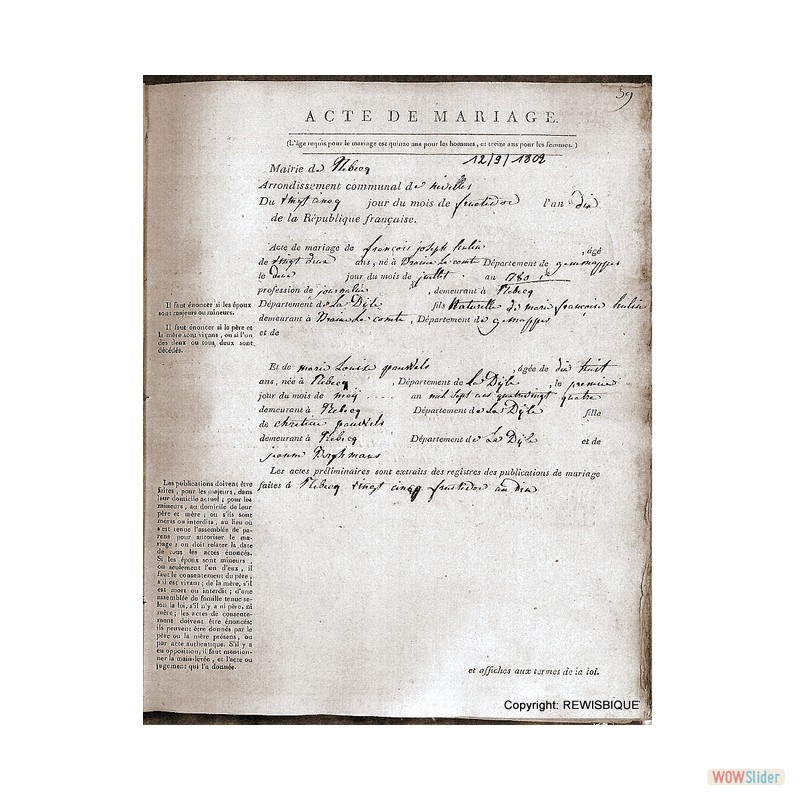 39
ACTE DE MARIAGE.
(L'âge requis pour le mariage est quinze ans pour les hommes, et treize ans pour les femmes.)
12/9/1802
Mairie de Rebecq
Arrondissement communal de nivelles
Du vingt cinq jour du mois de fructidor l'an dix
de la République française.
Acte de mariage de françois joseph hulin , âgé
de vingt deux ans, né à Braine le comte Département de gemmappes
le deux jour du mois de juillet an 1780
profession de journalier , demeurant à Rebecq
Département de La Dyle fils Naturelle de marie françoise hulin
demeurant à Braine le comte, Département de gemappes
et de
Il faut énoncer si les époux
sont majeurs ou mineurs.
Il faut énoncer si le père et
la mère sont vivans, ou si l'un
des deux ou tous deux sont
décédés.
Et de marie Louise pauwels , âgée de dix huit
ans, née à Rebecq , Département de La Dyle , le premier
jour du mois de mey .... an mil sept cent quatrevingt quatre
demeurant à Rebecq Département de La Dyle fille
de chretien pauwels
demeurant à Rebecq Département de La Dyle et de
jeanne Borghmans
Les actes préliminaires sont extraits des registres des publications de mariage
faites à Rebecq vingt cinq fructidor an dix
Les publications doivent être
faites, pour les majeurs, dans
leur domicile actuel ; pour les
mineurs, au domicile de leur
père et mère ; ou s'ils sont
morts ou interdits, au lieu où
s'est tenue l'assemblée de pa-
rens pour autoriser le ma-
riage : on doit relater la date
de tous les actes énoncés.
Si les époux sont mineurs,
ou seulement l'un d'eux, il
faut le consentement du père,
s'il est vivant ; de la mère, s'il
est mort ou interdit ; d'une
assemblée de famille tenue se-
lon la loi, s'il n'y a ni père, ni
mère ; les actes de consente-
ment doivent être énoncés ;
ils peuvent être donnés par le
père ou la mère présens, ou
par acte authentique. S'il y a
eu opposition, il faut mention-
ner la main-levée, et l'acte ou
jugement qui l'a donnée.
et affiches aux termes de la loi.
Copyright: REWISBIQUE
WOWSlider